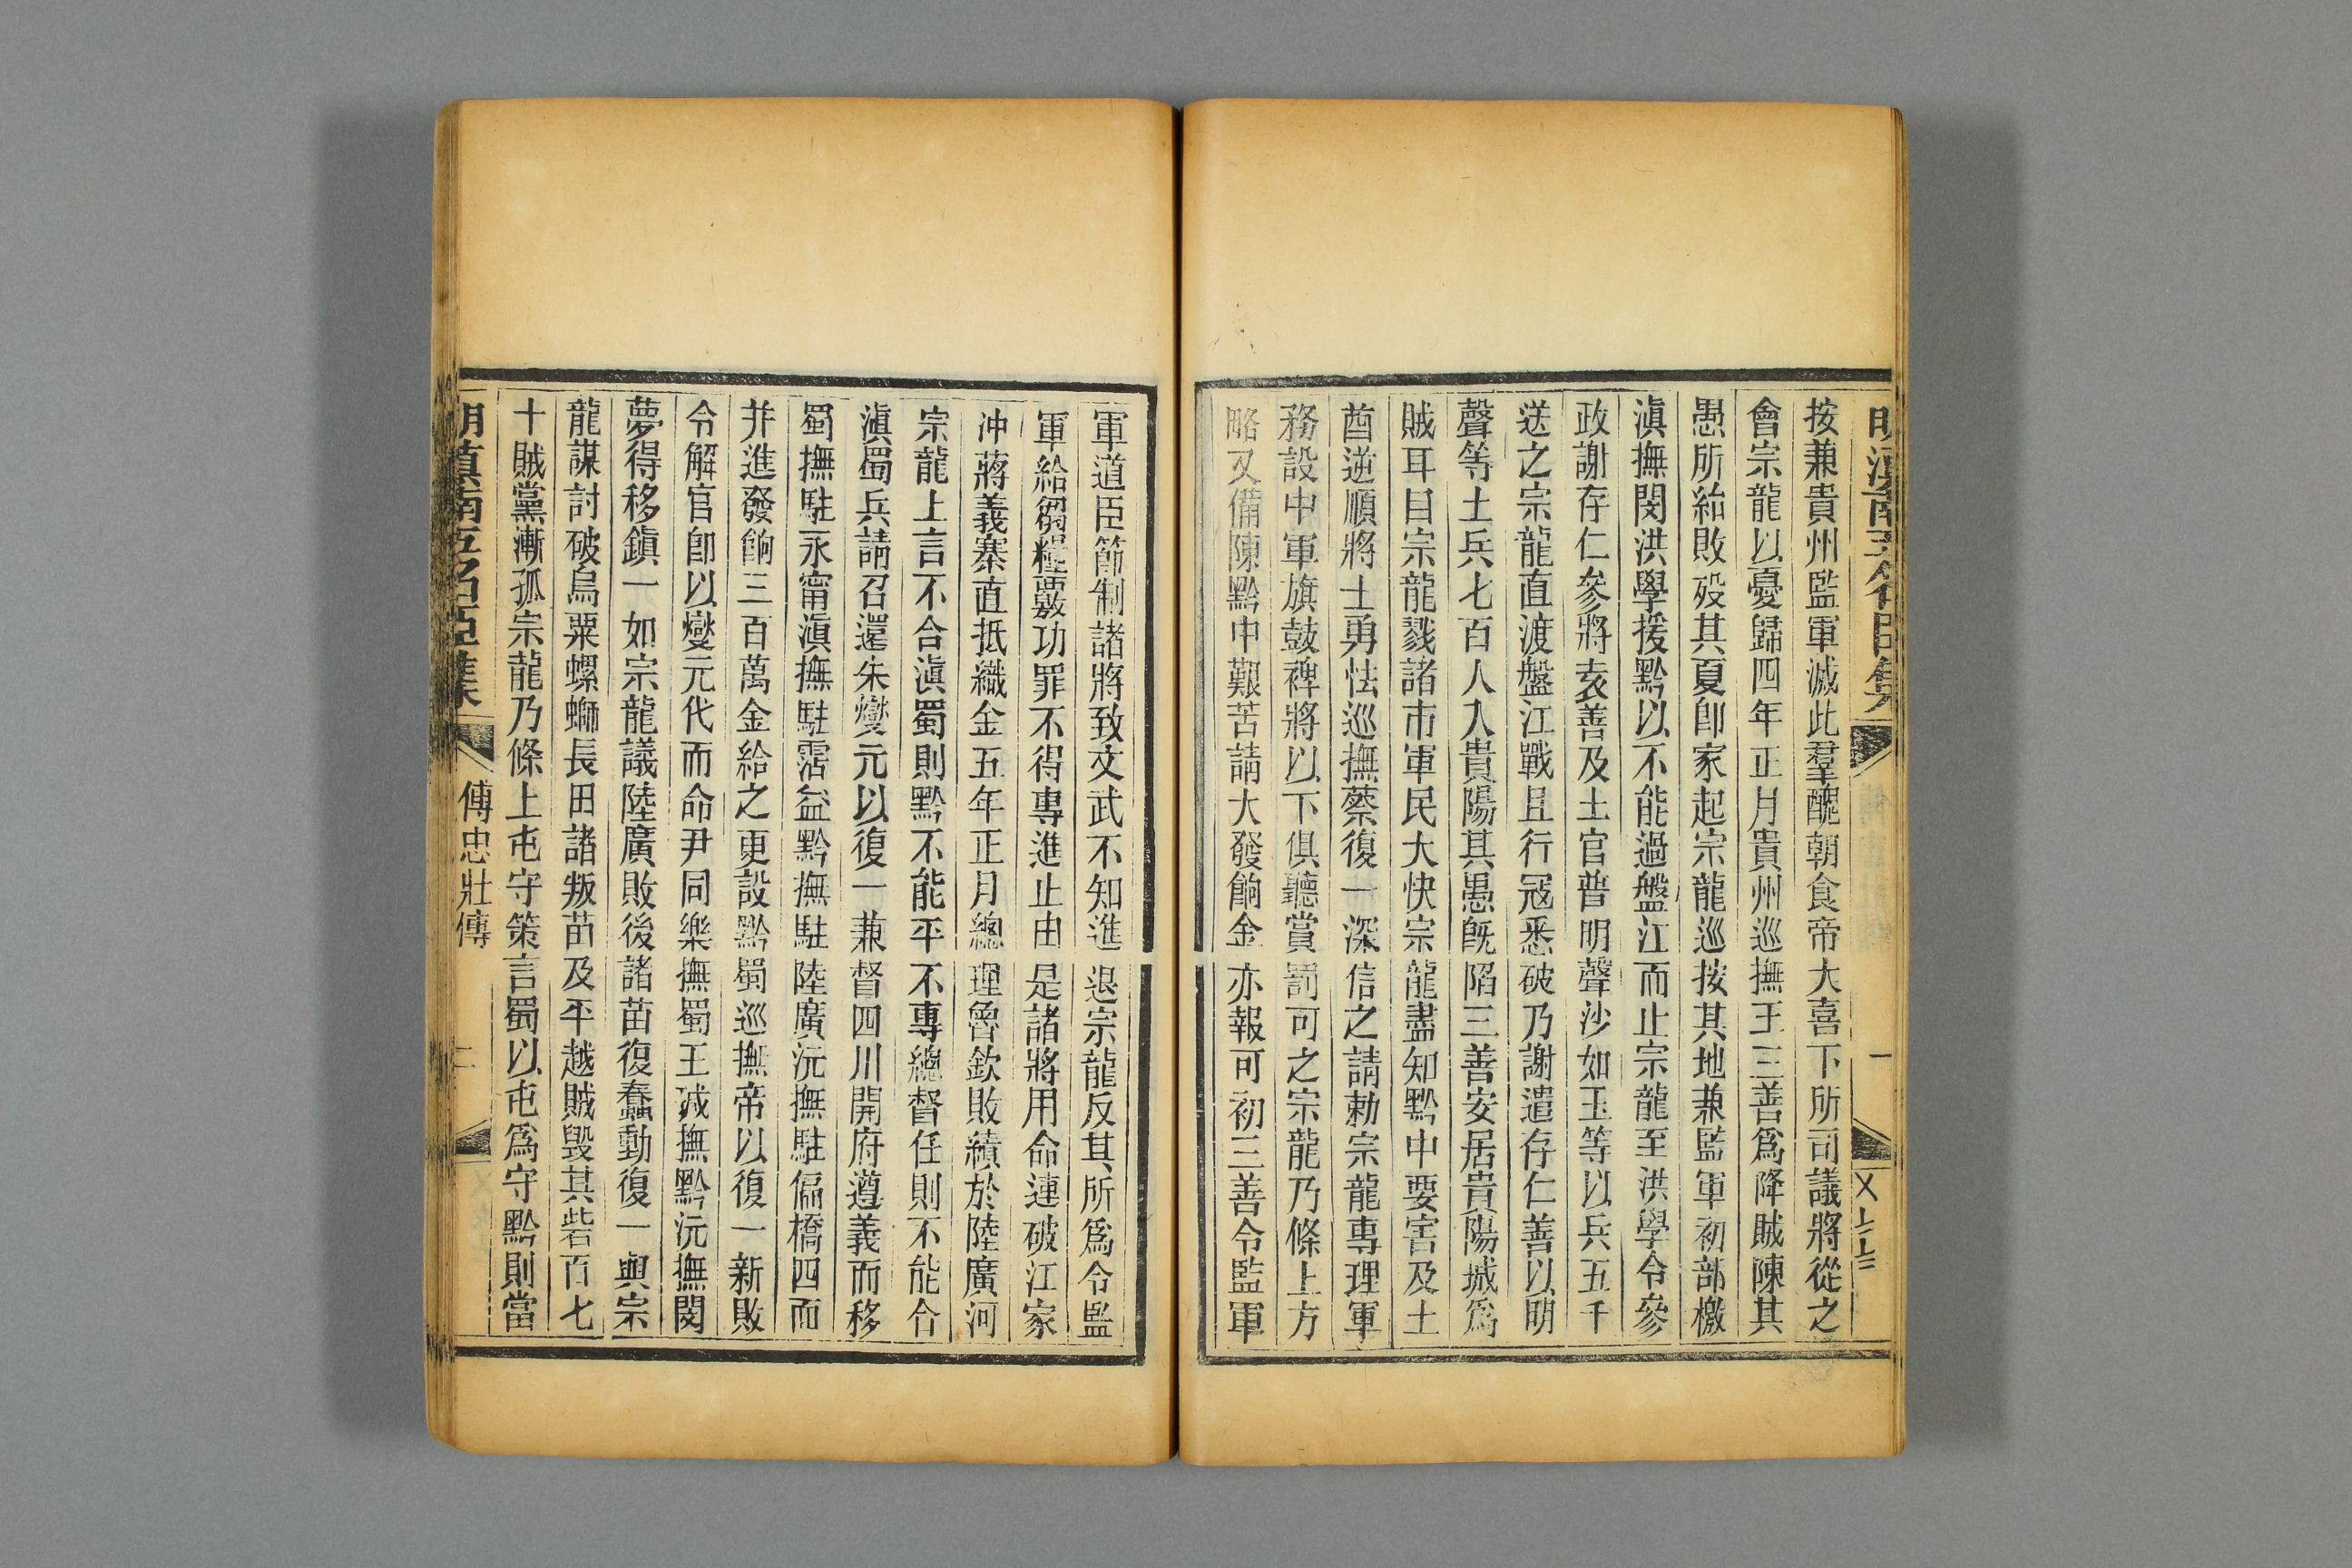 明滇南五名臣集
一
按兼貴州監軍滅此羣醜朝食帝大喜下所司議將從之
會宗龍以憂歸四年正月貴州巡撫王三善爲降賊陳其
愚所紿敗歿其夏卽家起宗龍巡按其地兼監軍初部檄
滇撫閔洪學援黔以不能過盤江而止宗龍至洪學令參
政謝存仁參將袁善及土官普明聲沙如玉等以兵五千
送之宗龍直渡盤江戰且行冦悉破乃謝遣存仁善以明
聲等土兵七百人入貴陽其愚旣陷三善安居貴陽城爲
賊耳目宗龍戮諸市軍民大快宗龍盡知黔中要害及土
酋逆順將士勇怯巡撫蔡復一深信之請勅宗龍專理軍
務設中軍旗鼓裨將以下俱聽賞罰可之宗龍乃條上方
略又備陳黔中艱苦請大發餉金亦報可初三善令監軍
軍道臣節制諸將致文武不知進退宗龍反其所爲令監
軍給芻糧覈功罪不得專進止由是諸將用命連破江家
沖蔣義寨直抵織金五年正月總理魯欽敗績於陸廣河
宗龍上言不合滇蜀則黔不能平不專總督任則不能合
滇蜀兵請召還朱燮元以復一兼督四川開府遵義而移
蜀撫駐永甯滇撫駐霑益黔撫駐陸廣沅撫駐偏橋四面
幷進發餉三百萬金給之更設黔蜀巡撫帝以復一新敗
令解官卽以燮元代而命尹同樂撫蜀王瑊撫黔沅撫閔
夢得移鎭一如宗龍議陸廣敗後諸苗復蠢動復一與宗
龍謀討破烏粟螺螄長田諸叛苗及平越賊毀其砦百七
十賊黨漸孤宗龍乃條上屯守策言蜀以屯爲守黔則當
明滇南五名臣集
傅忠壯傳
二